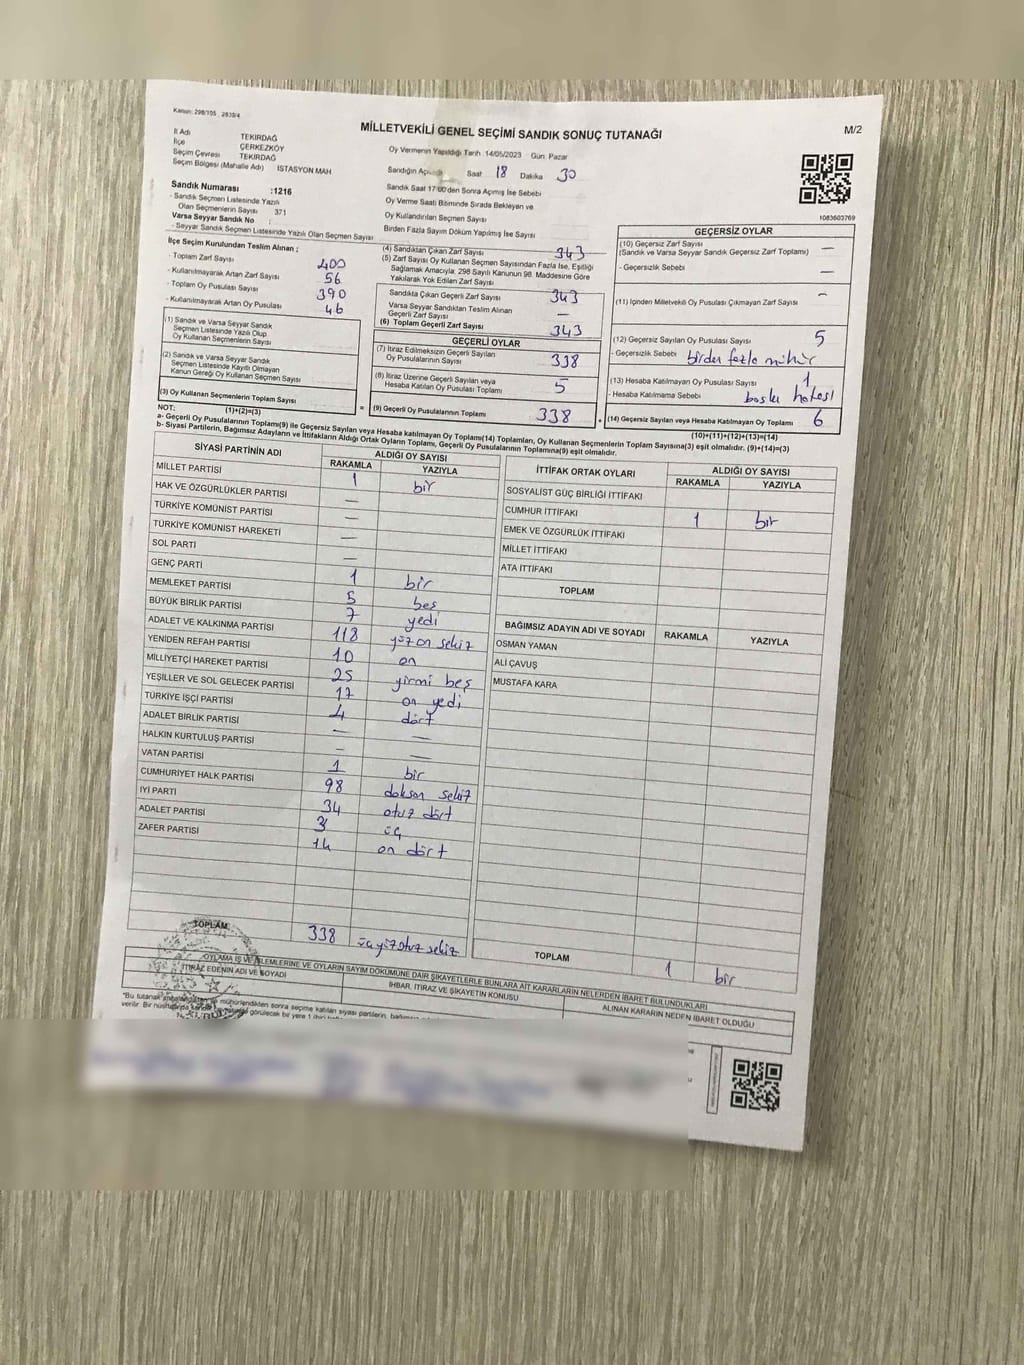 Kanun: 298/105 , 2839/4
MİLLETVEKİLİ GENEL SEÇİMİ SANDIK SONUÇ TUTANAĞI
M/2
İl Adı TEKİRDAĞ
İlçe ÇERKEZKÖY
Seçim Çevresi TEKİRDAĞ
Seçim Bölgesi (Mahalle Adı) İSTASYON MAH
Oy Vermenin Yapıldığı Tarih :14/05/2023 Gün: Pazar
Sandığın Açıldığı Saat 18 Dakika 30
Sandık Saat 17:00'den Sonra Açılmış İse Sebebi
Oy Verme Saati Bitiminde Sırada Bekleyen ve
Oy Kullandırılan Seçmen Sayısı
Birden Fazla Sayım Döküm Yapılmış İse Sayısı
1083603769
Sandık Numarası :1216
- Sandık Seçmen Listesinde Yazılı
Olan Seçmenlerin Sayısı 371
Varsa Seyyar Sandık No :
- Seyyar Sandık Seçmen Listesinde Yazılı Olan Seçmen Sayısı
İlçe Seçim Kurulundan Teslim Alınan :
- Toplam Zarf Sayısı 400
- Kullanılmayarak Artan Zarf Sayısı 56
- Toplam Oy Pusulası Sayısı 390
- Kullanılmayarak Artan Oy Pusulası 46
(1) Sandık ve Varsa Seyyar Sandık
Seçmen Listesinde Yazılı Olup
Oy Kullanan Seçmenlerin Sayısı
(2) Sandık ve Varsa Seyyar Sandık
Seçmen Listesinde Kayıtlı Olmayan
Kanun Gereği Oy Kullanan Seçmen Sayısı
(3) Oy Kullanan Seçmenlerin Toplam Sayısı
(1)+(2)=(3)
(4) Sandıktan Çıkan Zarf Sayısı 343
(5) Zarf Sayısı Oy Kullanan Seçmen Sayısından Fazla İse, Eşitliği
Sağlamak Amacıyla; 298 Sayılı Kanunun 98. Maddesine Göre
Yakılarak Yok Edilen Zarf Sayısı
Sandıkta Çıkan Geçerli Zarf Sayısı 343
Varsa Seyyar Sandıktan Teslim Alınan
Geçerli Zarf Sayısı —
(6) Toplam Geçerli Zarf Sayısı 343
GEÇERLİ OYLAR
(7) İtiraz Edilmeksizin Geçerli Sayılan
Oy Pusulalarının Sayısı 338
(8) İtiraz Üzerine Geçerli Sayılan veya
Hesaba Katılan Oy Pusulası Toplamı 5
= (9) Geçerli Oy Pusulalarının Toplamı 338 +
GEÇERSİZ OYLAR
(10) Geçersiz Zarf Sayısı —
(Sandık ve Varsa Seyyar Sandık Geçersiz Zarf Toplamı)
- Geçersizlik Sebebi —
(11) İçinden Milletvekili Oy Pusulası Çıkmayan Zarf Sayısı —
(12) Geçersiz Sayılan Oy Pusulası Sayısı 5
- Geçersizlik Sebebi birden fazla mühür
(13) Hesaba Katılmayan Oy Pusulası Sayısı 1
- Hesaba Katılmama Sebebi baskı hatası
(14) Geçersiz Sayılan veya Hesaba Katılmayan Oy Toplamı 6
(10)+(11)+(12)+(13)=(14)
NOT:
a- Geçerli Oy Pusulalarının Toplamı(9) ile Geçersiz Sayılan veya Hesaba katılmayan Oy Toplamı(14) Toplamları, Oy Kullanan Seçmenlerin Toplam Sayısına(3) eşit olmalıdır. (9)+(14)=(3)
b- Siyasi Partilerin, Bağımsız Adayların ve İttifakların Aldığı Ortak Oyların Toplamı, Geçerli Oy Pusulalarının Toplamına(9) eşit olmalıdır.
SİYASİ PARTİNİN ADI ALDIĞI OY SAYISI
RAKAMLA YAZIYLA
MİLLET PARTİSİ 1 bir
HAK VE ÖZGÜRLÜKLER PARTİSİ —
TÜRKİYE KOMÜNİST PARTİSİ —
TÜRKİYE KOMÜNİST HAREKETİ —
SOL PARTİ —
GENÇ PARTİ 1 bir
MEMLEKET PARTİSİ 5 beş
BÜYÜK BİRLİK PARTİSİ 7 yedi
ADALET VE KALKINMA PARTİSİ 118 yüz on sekiz
YENİDEN REFAH PARTİSİ 10 on
MİLLİYETÇİ HAREKET PARTİSİ 25 yirmi beş
YEŞİLLER VE SOL GELECEK PARTİSİ 17 on yedi
TÜRKİYE İŞÇİ PARTİSİ 4 dört
ADALET BİRLİK PARTİSİ — —
HALKIN KURTULUŞ PARTİSİ — —
VATAN PARTİSİ 1 bir
CUMHURİYET HALK PARTİSİ 98 doksan sekiz
İYİ PARTİ 34 otuz dört
ADALET PARTİSİ 3 üç
ZAFER PARTİSİ 14 on dört
TOPLAM 338 üçyüzotuz sekiz
İTTİFAK ORTAK OYLARI ALDIĞI OY SAYISI
RAKAMLA YAZIYLA
SOSYALİST GÜÇ BİRLİĞİ İTTİFAKI
CUMHUR İTTİFAKI 1 bir
EMEK VE ÖZGÜRLÜK İTTİFAKI
MİLLET İTTİFAKI
ATA İTTİFAKI
TOPLAM
BAĞIMSIZ ADAYIN ADI VE SOYADI RAKAMLA YAZIYLA
OSMAN YAMAN
ALİ ÇAVUŞ
MUSTAFA KARA
TOPLAM 1 bir
OYLAMA İŞ VE İŞLEMLERİNE VE OYLARIN SAYIM DÖKÜMÜNE DAİR ŞİKAYETLERLE BUNLARA AİT KARARLARIN NELERDEN İBARET BULUNDUKLARI
İTİRAZ EDENİN ADI VE SOYADI İHBAR, İTİRAZ VE ŞİKAYETİN KONUSU ALINAN KARARIN NEDEN İBARET OLDUĞU